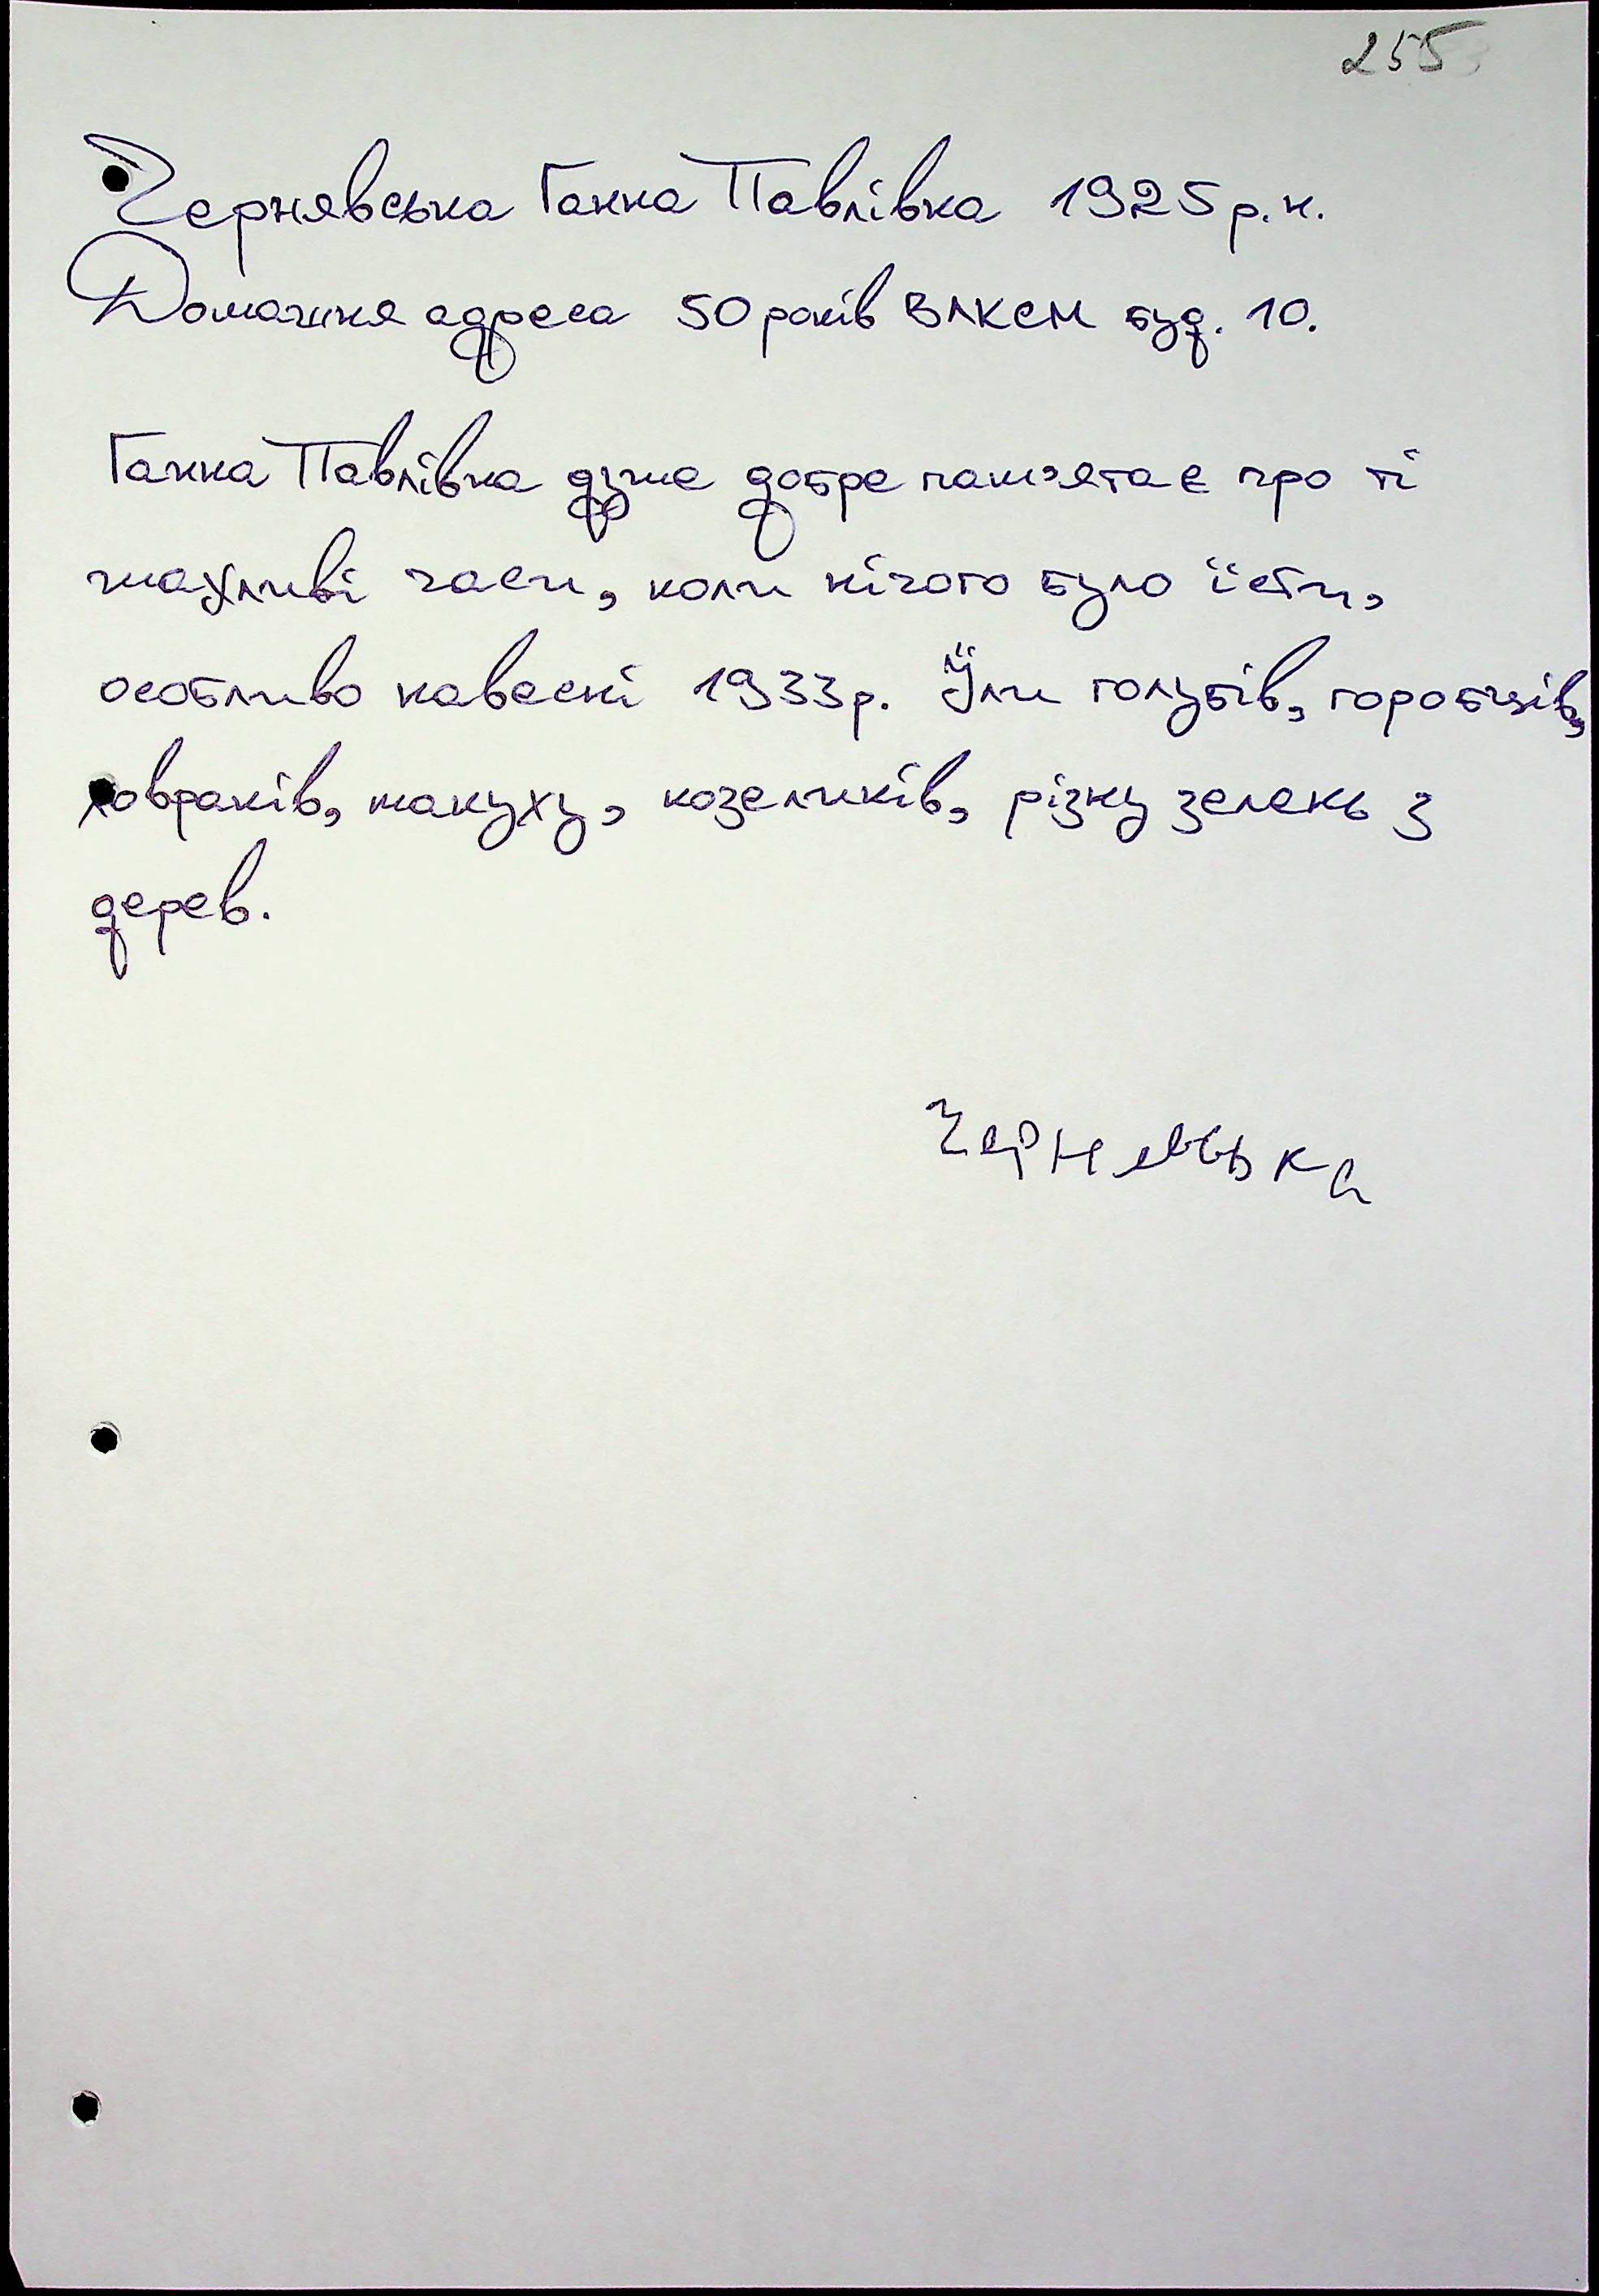 255
Чернявська Ганна Павлівна 1925 р.н.
Домашня адреса 50 років ВЛКСМ буд. 10.
Ганна Павлівна дуже добре пам'ятає про ті
жахливі часи, коли нічого було їсти,
особливо навесні 1933р. Їли голубів, горобців,
ховрахів, макуху, козеликів, різну зелень з
дерев.
Чернявська